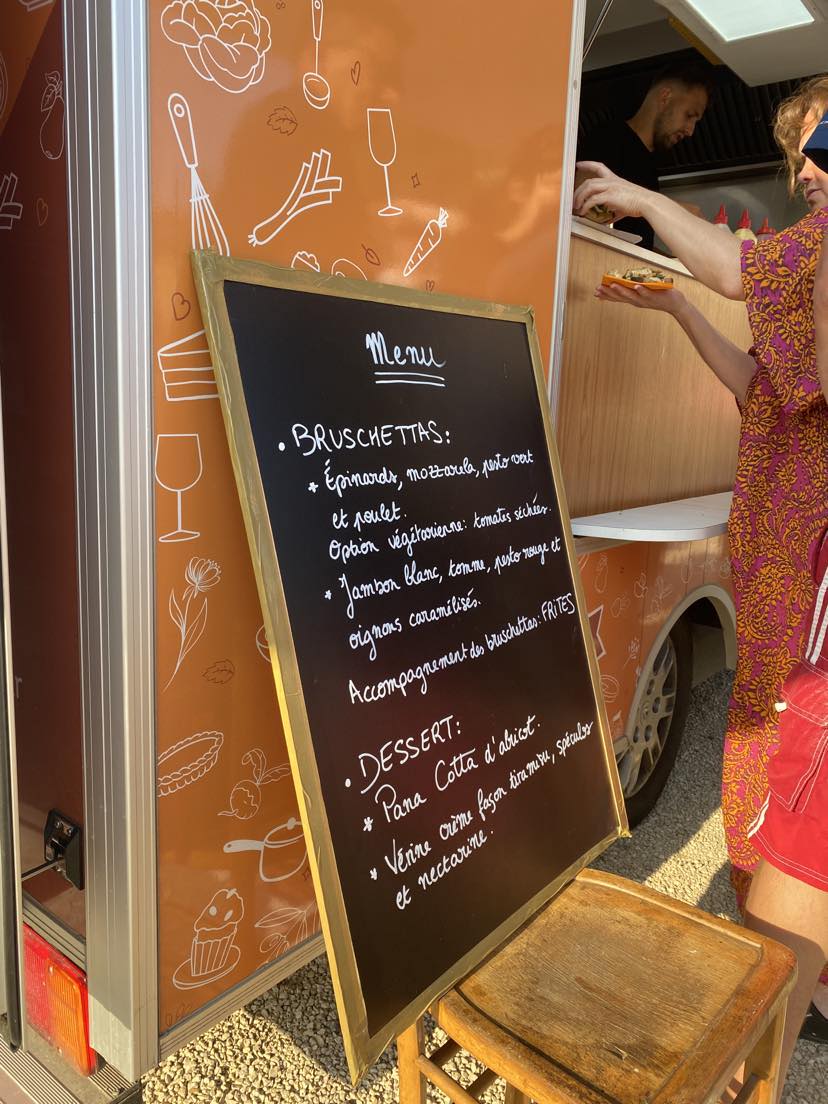 Menu
• BRUSCHETTAS:
* Épinards, mozzarela, pesto vert
et poulet.
Option végétarienne: tomates séchées.
* Jambon blanc, tomme, pesto rouge et
oignons caramélisés.
Accompagnement des bruschettas: FRITES
• DESSERT:
* Pana Cotta d'abricot.
* Vérine crème façon tiramisu, spéculos
et nectarine.